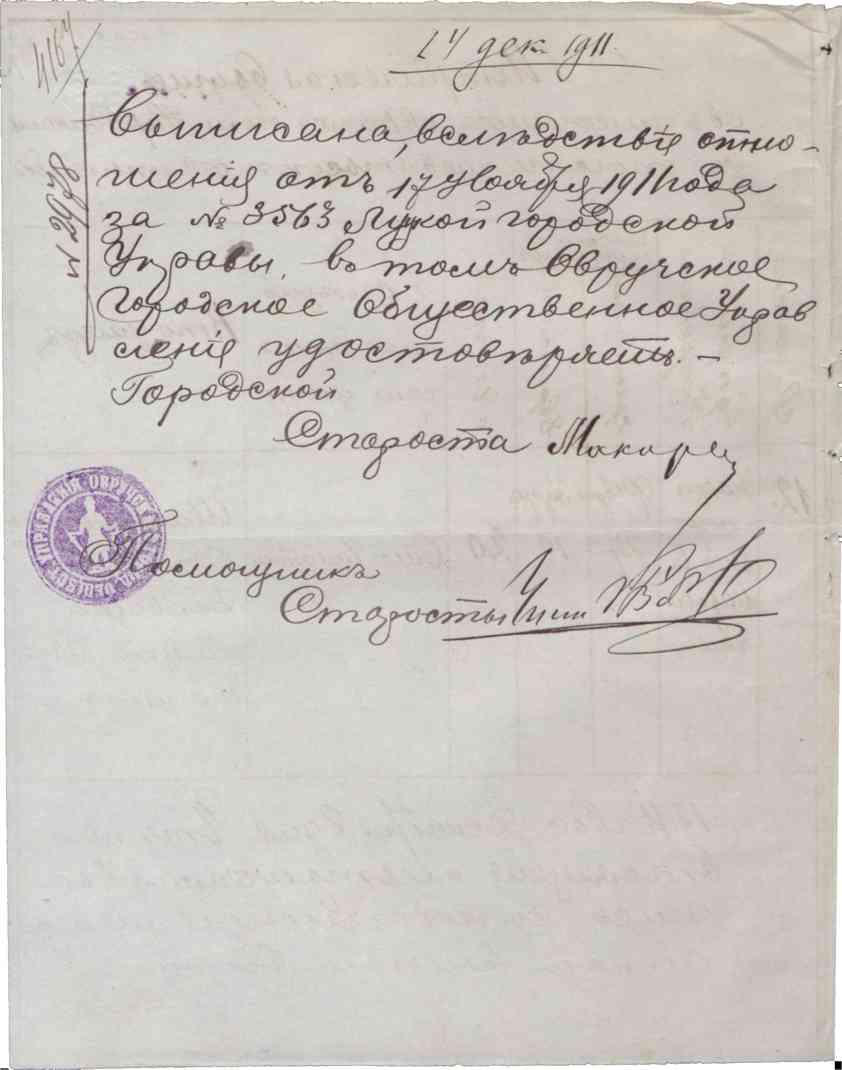 24 дек. 1911
4164
№ 2978
Выписана, вслѣдствіе отно-
шенія отъ 17 Ноября 1911 года
за № 3563 Луцкой городской
Управы, въ томъ Овручское
Городское Общественное Управ
леніе удостовѣряетъ. –
Городской
Староста
Помощникъ
Старосты